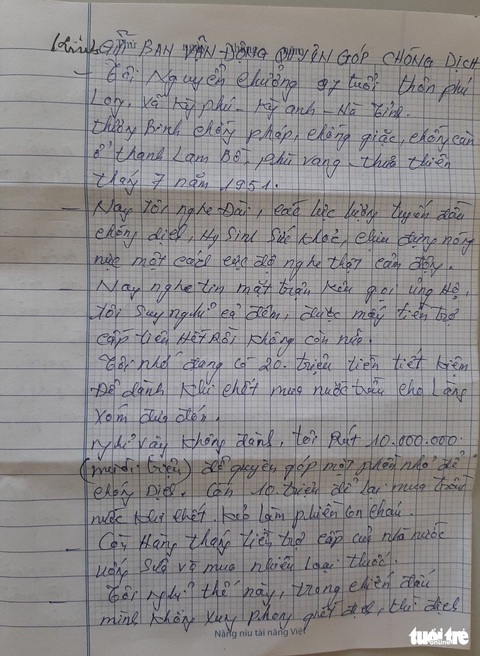 Kính GỬI BAN VẬN ĐỘNG QUYÊN GÓP CHỐNG DỊCH
- Tôi Nguyễn Chưởng 97 tuổi thôn phú
Long, xã Kỳ phú - Kỳ anh - Hà Tĩnh.
thương Binh chống pháp, chống giặc, chống càn
ở thanh Lam Bồ, phú vang - thừa thiên
tháng 7 năm 1951.
- Nay Tôi nghe Đài, các lực lượng tuyến đầu
chống dịch, Hy Sinh Sức Khoẻ, chịu đựng nóng
nực một cách cực độ nghe thật cảm động.
- Nay nghe tin mặt trận Kêu gọi ủng Hộ,
tôi Suy nghĩ cả đêm, được mấy tiền trợ
cấp tiêu Hết Rồi Không còn nữa.
Tôi nhớ đang có 20. triệu tiền tiết Kiệm
Để dành Khi chết mua nước trầu cho Làng
Xóm đưa đón.
nghĩ vậy Không đành, tôi Rút 10.000.000.
(mười triệu) để quyên góp một phần nhỏ để
chống Dịch. Còn 10. triệu để lại mua trầu
nước Khi chết. Kẻo làm phiền con cháu.
- Còn Hàng tháng tiền trợ cấp của nhà nước
uống Sữa và mua nhiều loại thuốc.
- Tôi nghĩ thế này, trong chiến đấu
mình Không xung phong giết địch, thì địch
Nâng niu tài năng Việt
tuổi trẻ
Online